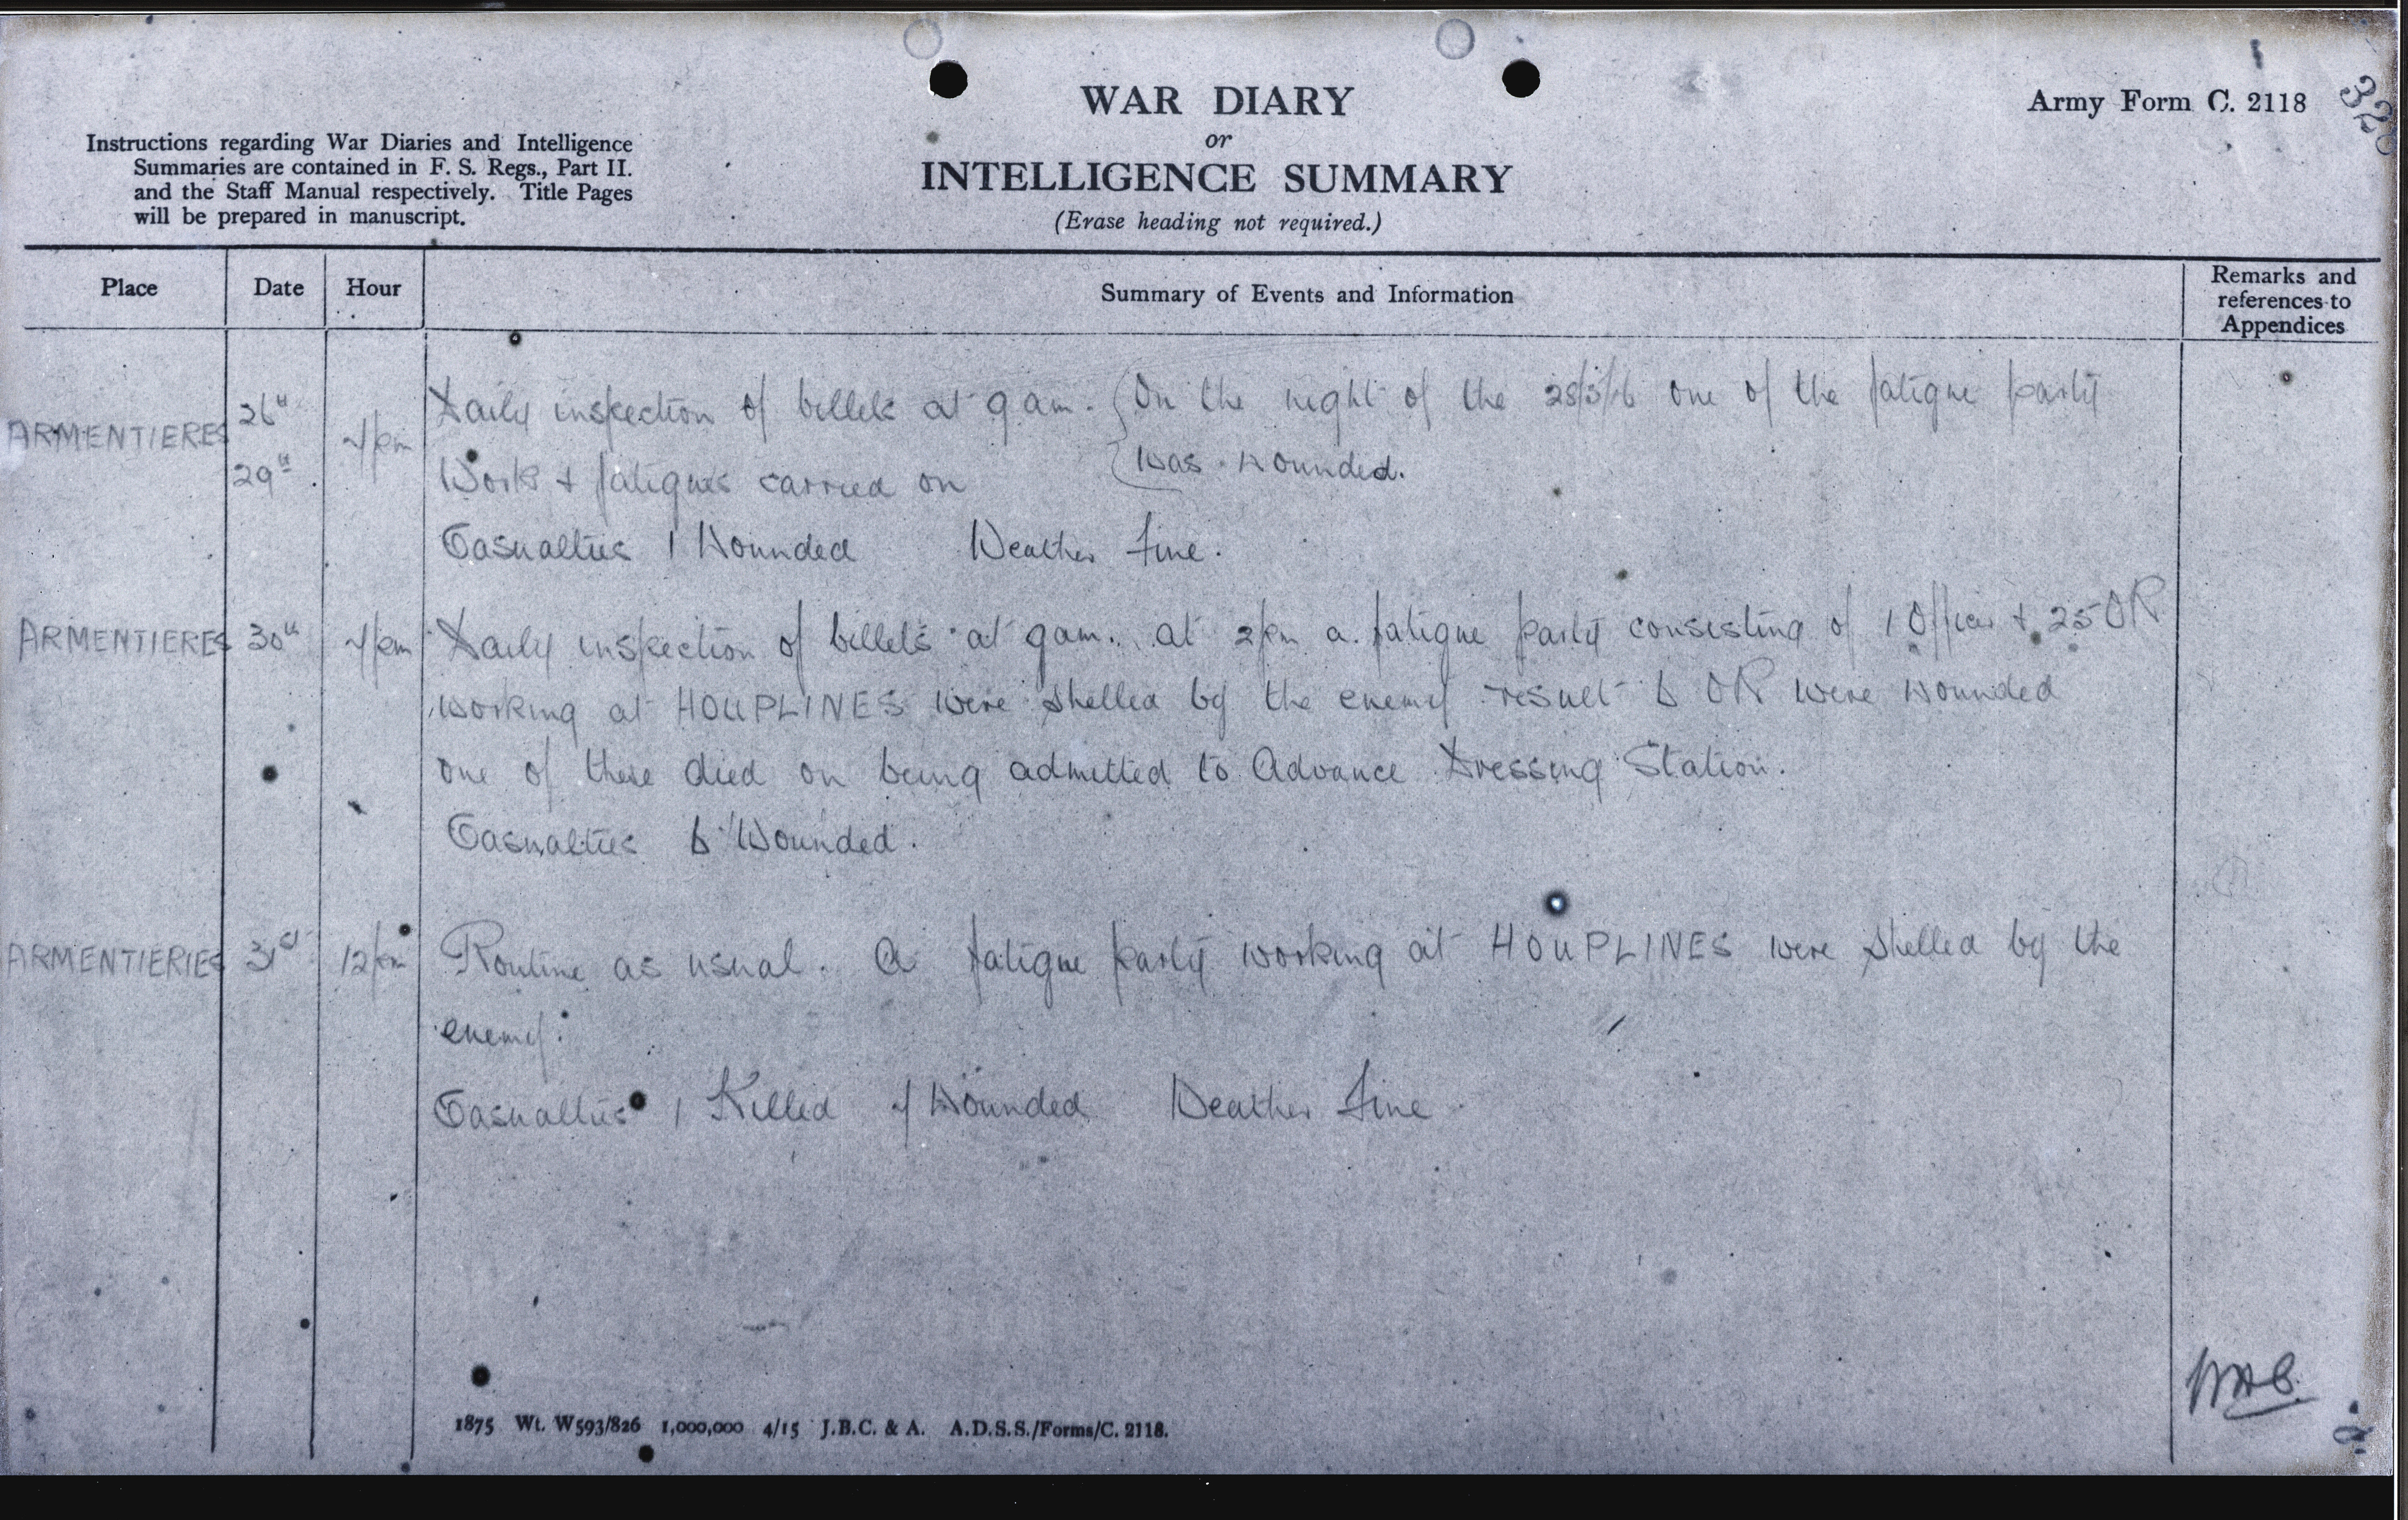 WAR DIARY
or
INTELLIGENCE SUMMARY
(Erase heading not required.)
Army Form C. 2118
Instructions regarding War Diaries and Intelligence
Summaries are contained in F. S. Regs., Part II.
and the Staff Manual respectively. Title Pages
will be prepared in manuscript.
Place Date Hour Summary of Events and Information Remarks and references to Appendices
ARMENTIERES 26th 29th Daily inspection of billets at 9 am. On the night of the one of the fatigue party
Work & fatigues carried on was wounded.
Casualties 1 Wounded Weather Fine.
ARMENTIERES 30th Daily inspection of billets at 9am. at 2pm a fatigue party consisting of 1 Officer & 25 OR
working at HOUPLINES were shelled by the enemy result 6 OR were wounded
one of these died on being admitted to Advance Dressing Station.
Casualties 6 Wounded.
ARMENTIERIES 31st 12pm Routine as usual. A fatigue party working at HOUPLINES were shelled by the
enemy.
Casualties 1 Killed 4 Wounded Weather Fine
1875 Wt. W593/826 1,000,000 4/15 J.B.C. & A. A.D.S.S./Forms/C. 2118.